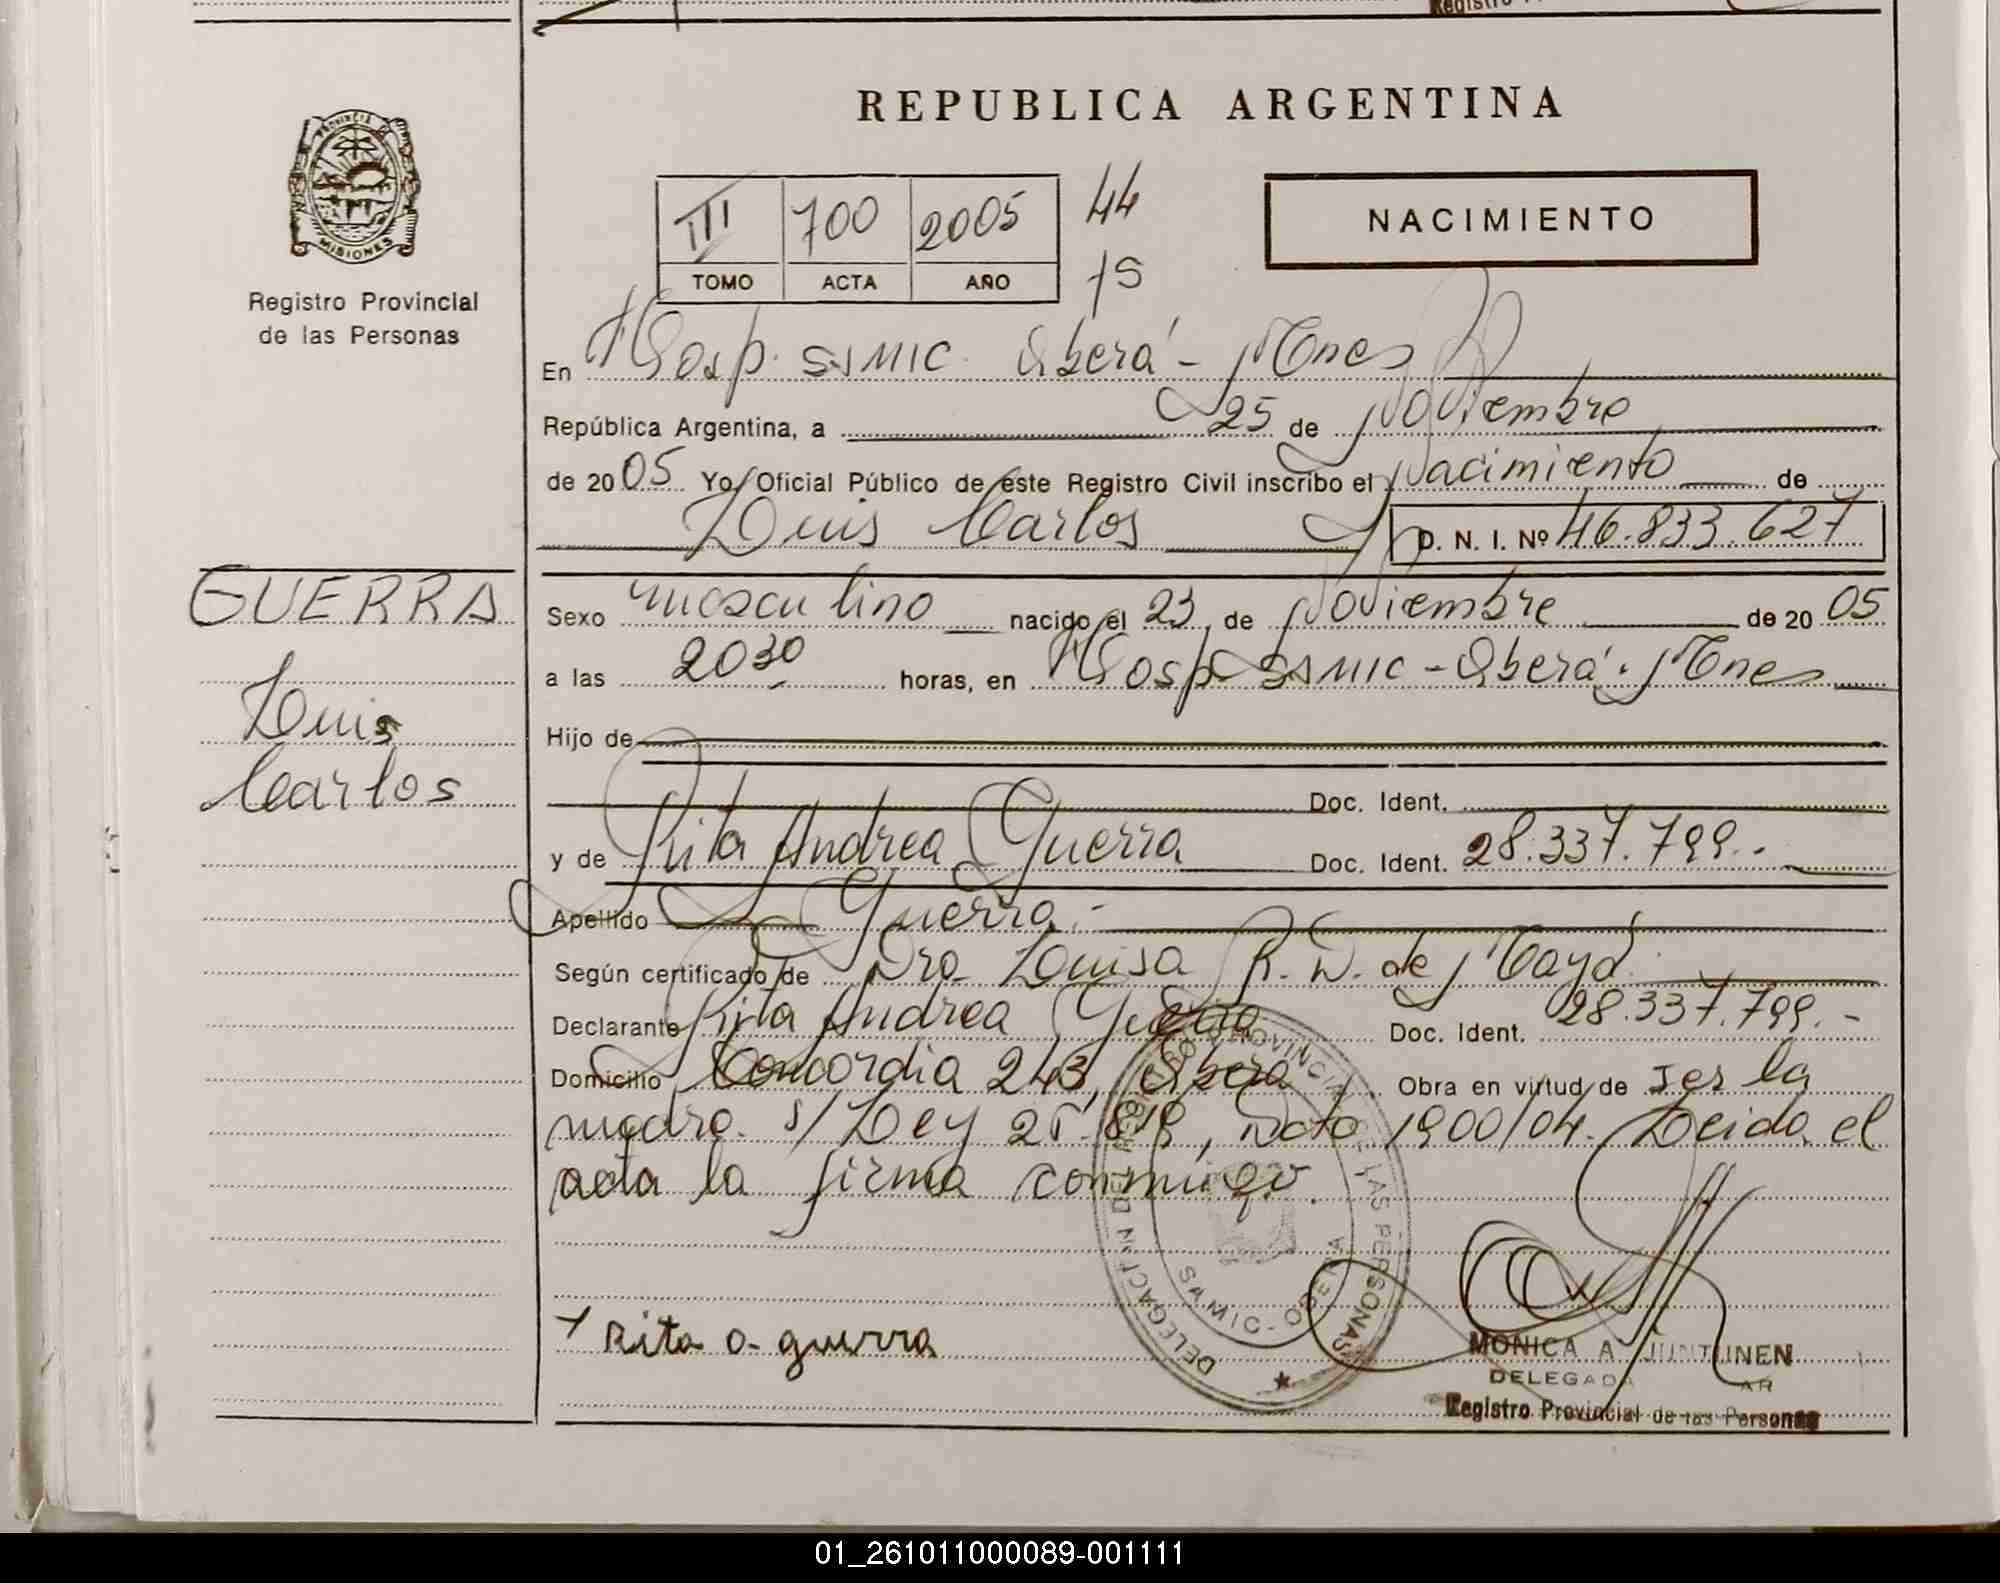 REPUBLICA ARGENTINA
PROVINCIA DE
MISIONES
Registro Provincial
de las Personas
III 700 2005 44
TOMO ACTA AÑO 75
NACIMIENTO
En Hosp. SAMIC. Oberá - Mnes
República Argentina, a 25 de Noviembre
de 2005 Yo, Oficial Público de este Registro Civil inscribo el Nacimiento de
Luis Carlos D. N. I. Nº 46.833.627
GUERRA
Luis
Carlos
Sexo masculino nacido el 23 de Noviembre de 2005
a las 20 30 horas, en Hosp SAMIC - Oberá - Mnes
Hijo de
Doc. Ident.
y de Rita Andrea Guerra Doc. Ident. 28.337.799.-
Apellido Guerra.-
Según certificado de Dra Luisa R. D. de
Declarante Rita Andrea Guerra Doc. Ident. 28.337.799.-
Domicilio Concordia 243, Oberá Obra en virtud de ser la
madre. s/ Ley 25.819, Dcto 1900/04. Leida el
acta la firma conmigo.
DELEGACION DEL REGISTRO PROVINCIAL DE LAS PERSONAS
SAMIC - OBERA
Rita a. guerra
MONICA A JUNTUNEN
DELEGADA
Registro Provincial de las Personas
01_261011000089-001111